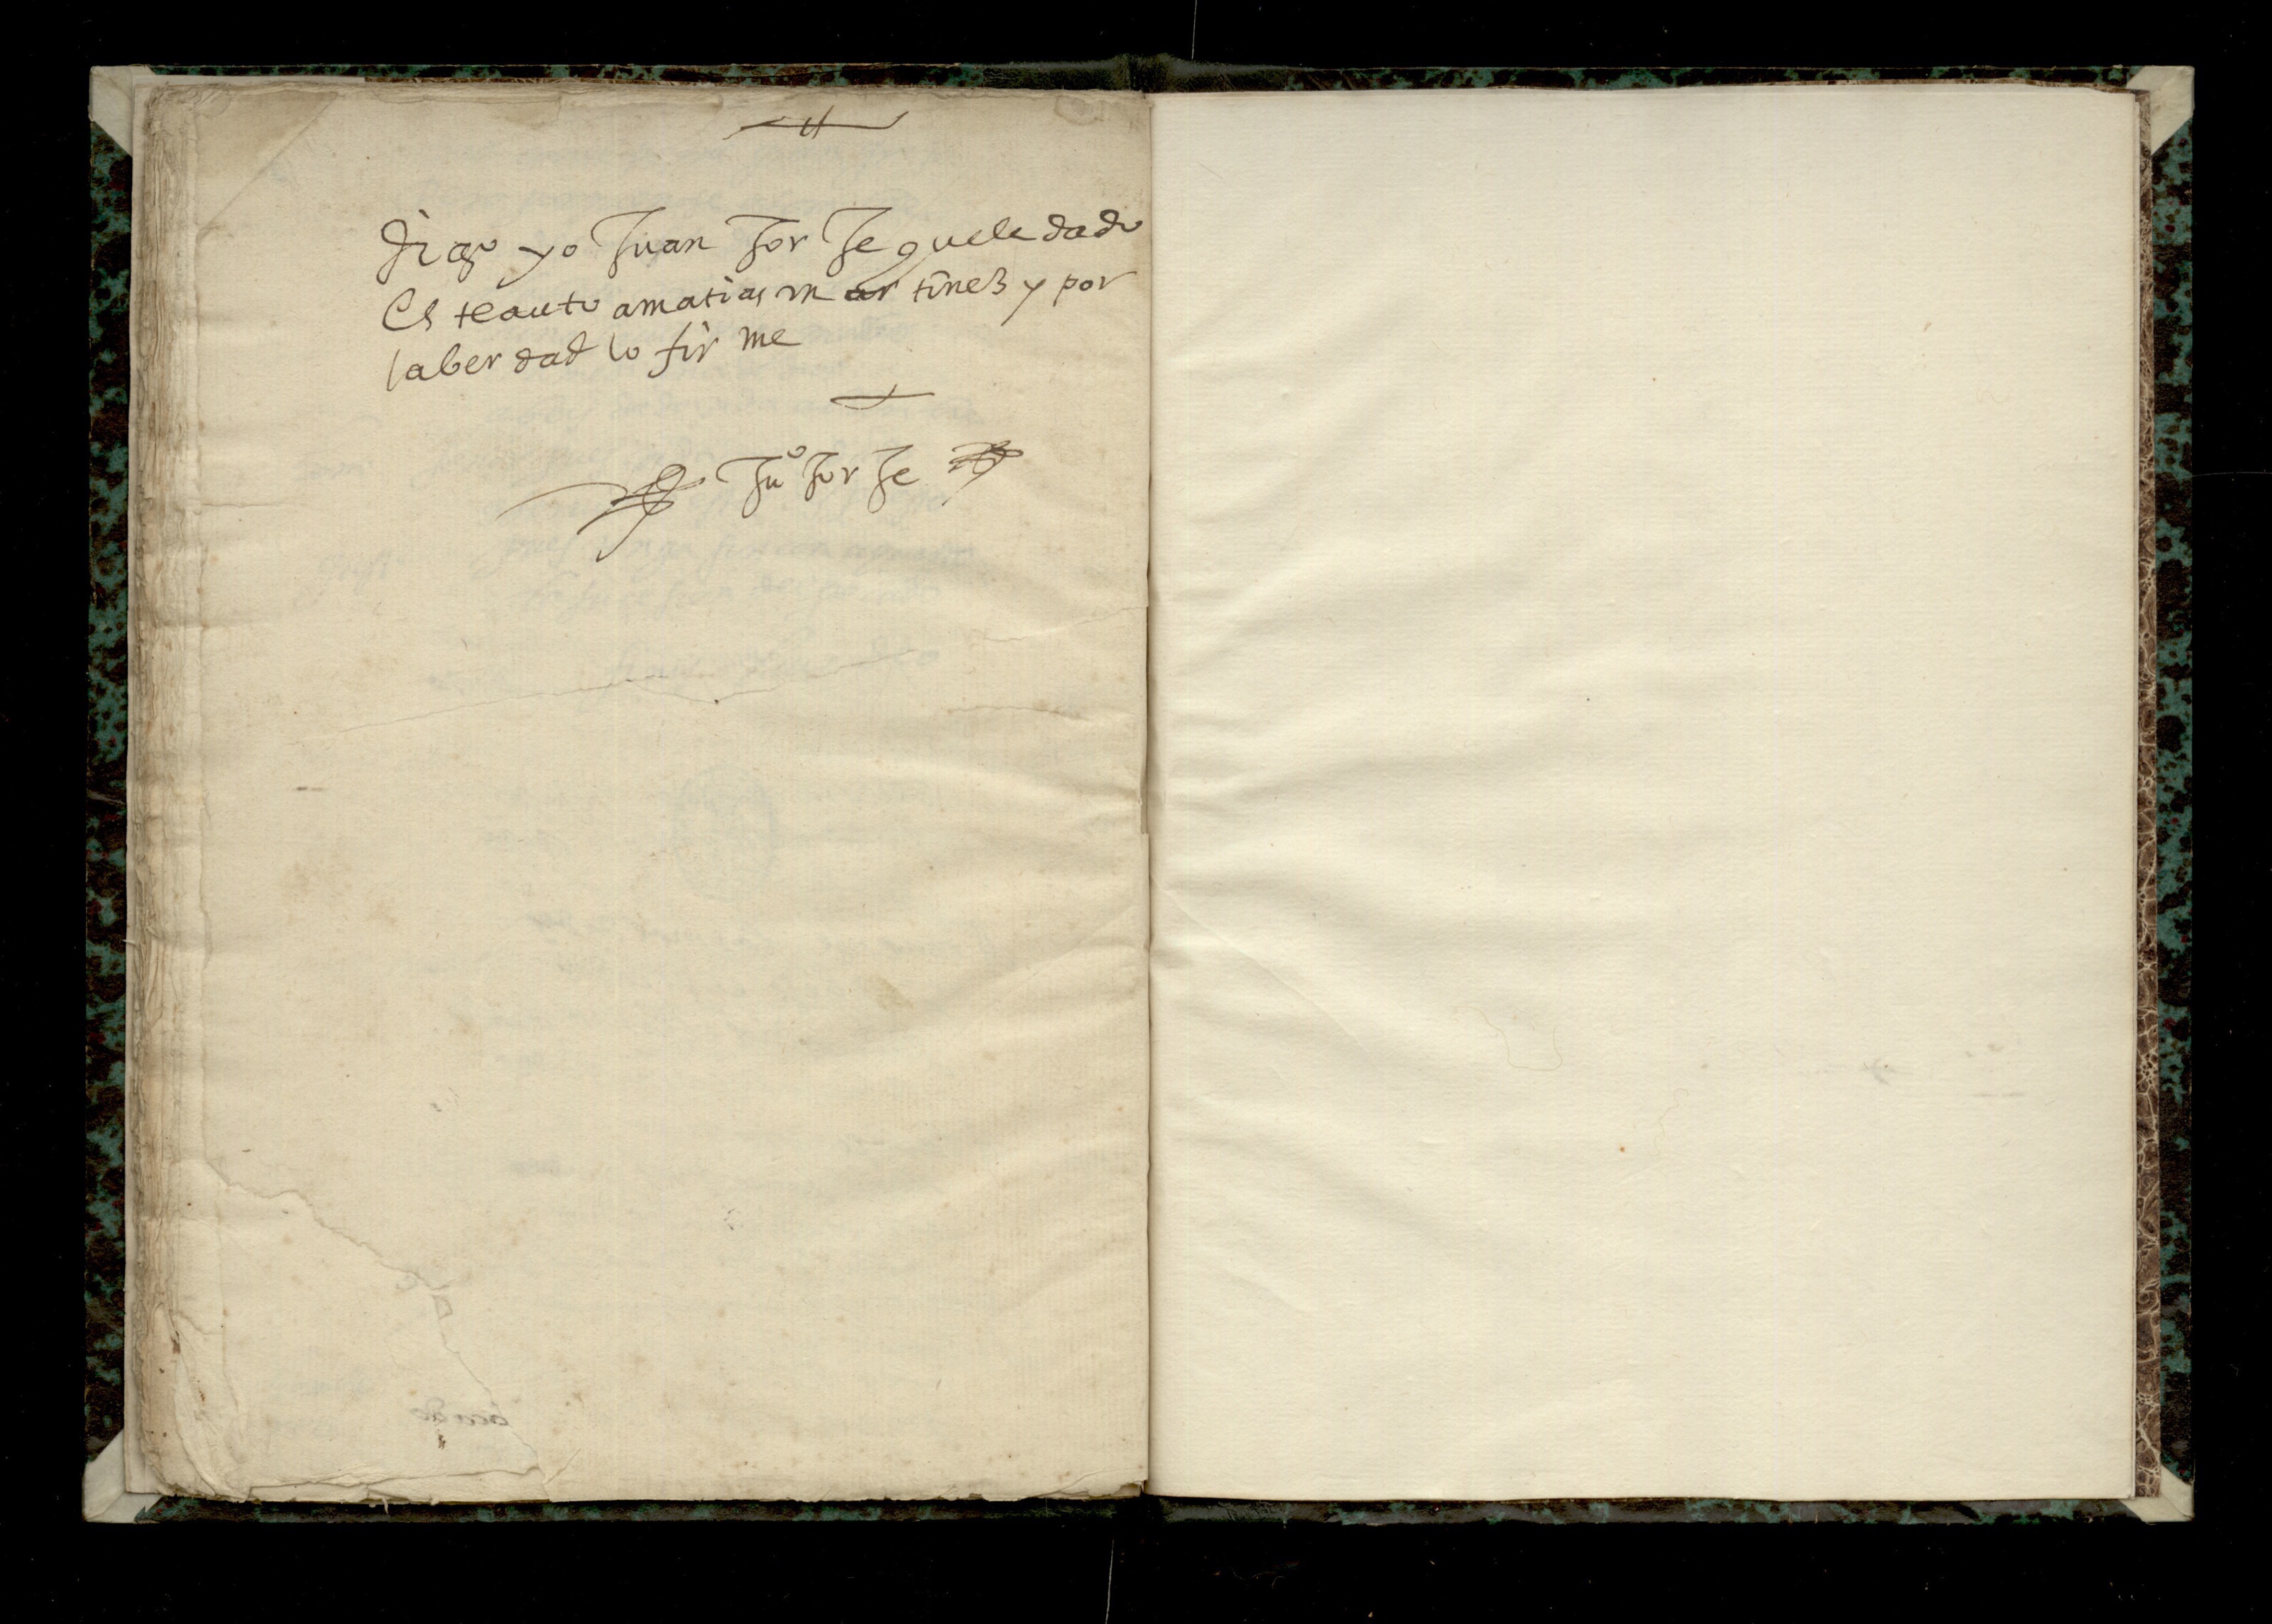 digo yo Juan Jorje que le dado
Este auto a matias martines y por
la berdad lo firme
Juº Jorje